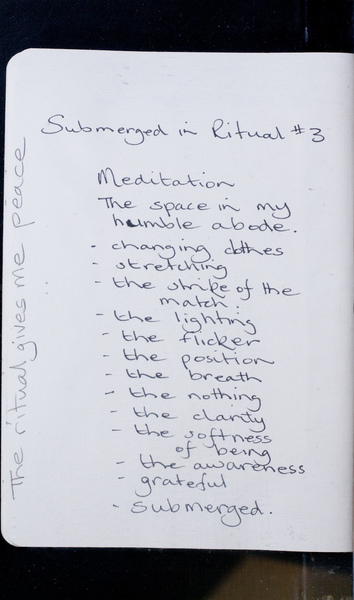 Submerged in Ritual #3
Meditation
The space in my
humble abode.
- changing clothes
- stretching
- the strike of the
match.
- the lighting
- the flicker
- the position
- the breath
- the nothing
- the clarity
- the softness
of being
- the awareness
- grateful
- submerged.
The ritual gives me peace